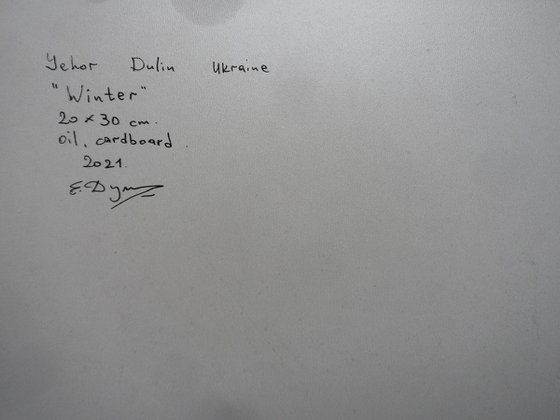 Yehor Dulin Ukraine
"Winter"
20 × 30 cm.
oil, cardboard.
2021.